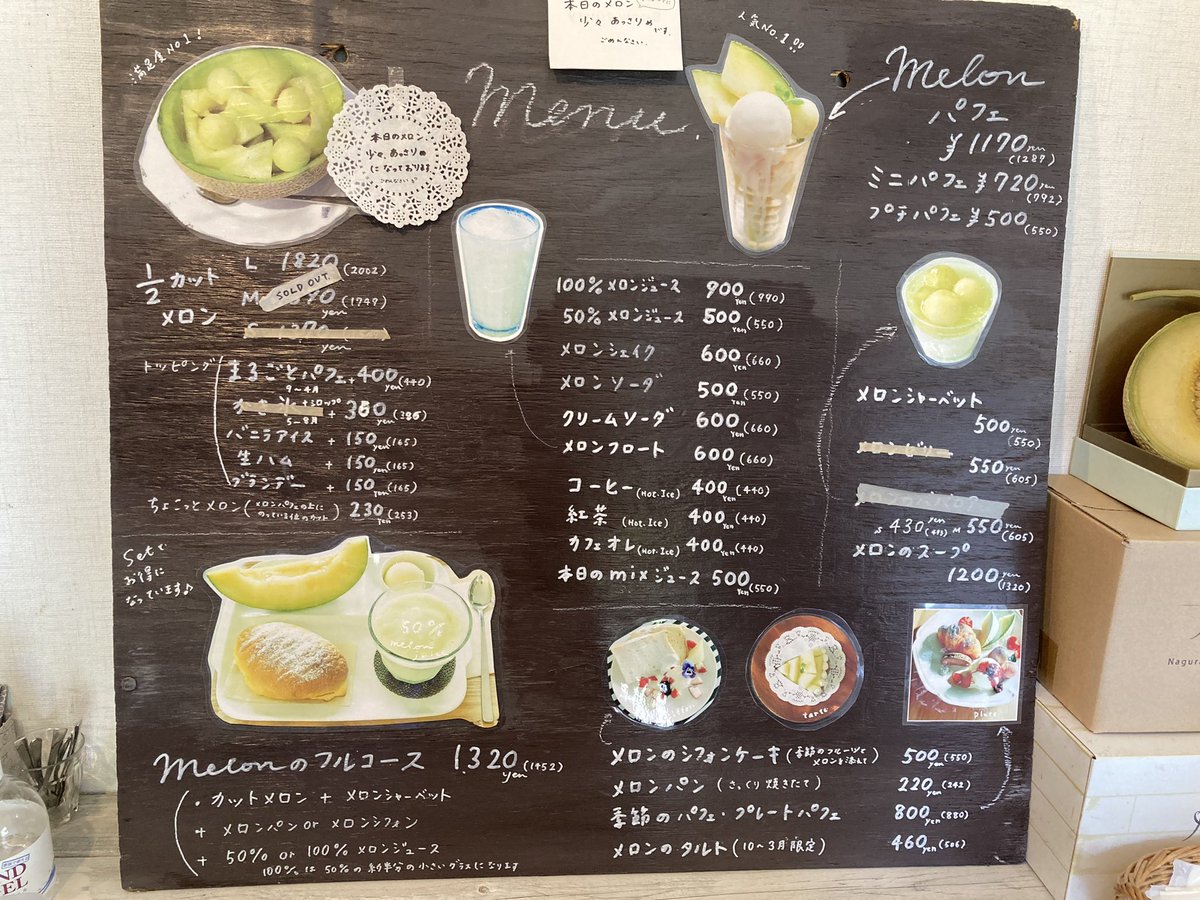 本日のメロン
少々あっさりめ
です。
ごめんなさい。
満足度No1!
本日のメロン
少々、あっさりめ
になっております
ごめんなさい
Menu
人気No.1!!
melon
パフェ
¥1170yen
(1287)
ミニパフェ ¥720yen
(792)
プチパフェ ¥500
(550)
1/2 カット
メロン
L 1820
(2002)
SOLD OUT.
M
yen
yen
トッピング
まるごとパフェ +400yen(440)
9~4月
5~8月
+
バニラアイス +150yen(165)
生ハム +150yen(165)
ブランデー +150yen(165)
ちょこっとメロン(メロンパフェの上に
のっている位のカット) 230yen(253)
Setで
お得に
なっています♪
50%
melon
juice
melonのフルコース 1.320yen(1452)
・カットメロン + メロンシャーベット
+ メロンパン or メロンシフォン
+ 50% or 100%メロンジュース
100%は50%の約半分の小さいグラスになります
100%メロンジュース 900yen(990)
50%メロンジュース 500yen(550)
メロンシェイク 600yen(660)
メロンソーダ 500yen(550)
クリームソーダ 600yen(660)
メロンフロート 600yen(660)
コーヒー(Hot.Ice) 400yen(440)
紅茶 (Hot.Ice) 400yen(440)
カフェオレ(Hot.Ice) 400yen(440)
本日のmixジュース 500yen(550)
メロンシャーベット
500yen
(550)
550yen
(605)
S 430yen M 550yen
(605)
メロンのスープ
1200yen
(1320)
tarte
plate
メロンのシフォンケーキ(季節のフルーツと
メロンを添えて) 500yen(550)
メロンパン(さっくり焼きたて) 220yen(242)
季節のパフェ・プレートパフェ 800yen(880)
メロンのタルト(10~3月限定) 460yen(506)
Nagura